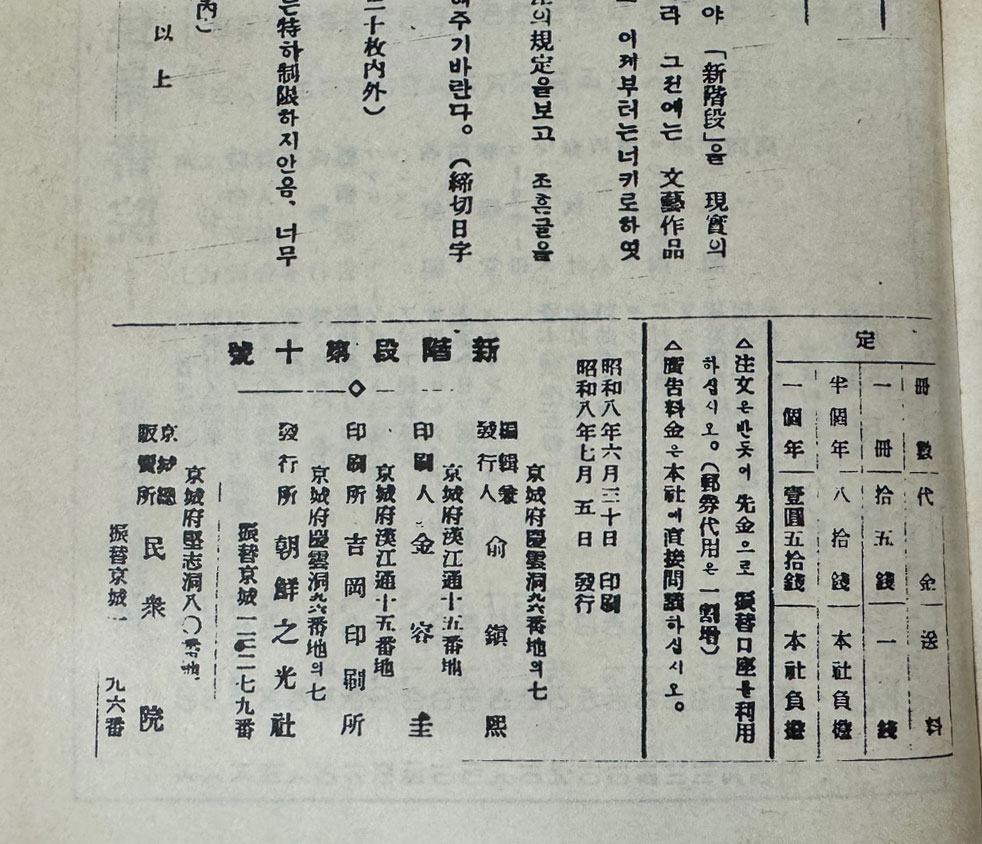 야 「新階段」을 現實의
라 그전에는 文藝作品
이제부터는너키로하엿
의規定을보고 조흔글을
해주기바란다。(締切日字
二十枚內外)
는特히制限하지안음、너무
內)
以上
定
冊數 代金 送料
一冊 拾五錢 一錢
半個年 八拾錢 本社負擔
一個年 壹圓五拾錢 本社負擔
△注文은반듯이 先金으로 振替口座를利用
하십시오。(郵券代用은 一割增)
△廣告料金은本社에直接問議하십시오。
昭和八年六月三十日 印刷
昭和八年七月 五 日 發行
新階段第十號
京城府慶雲洞九六番地의七
編輯兼
發行人 兪鎭熙
京城府漢江通十五番地
印刷人 金容圭
京城府漢江通十五番地
印刷所 吉岡印刷所
京城府慶雲洞九六番地의七
發行所 朝鮮之光社
振替京城一三二七九番
京城府堅志洞八〇番地
京城總
販賣所 民衆院
振替京城一 九六番